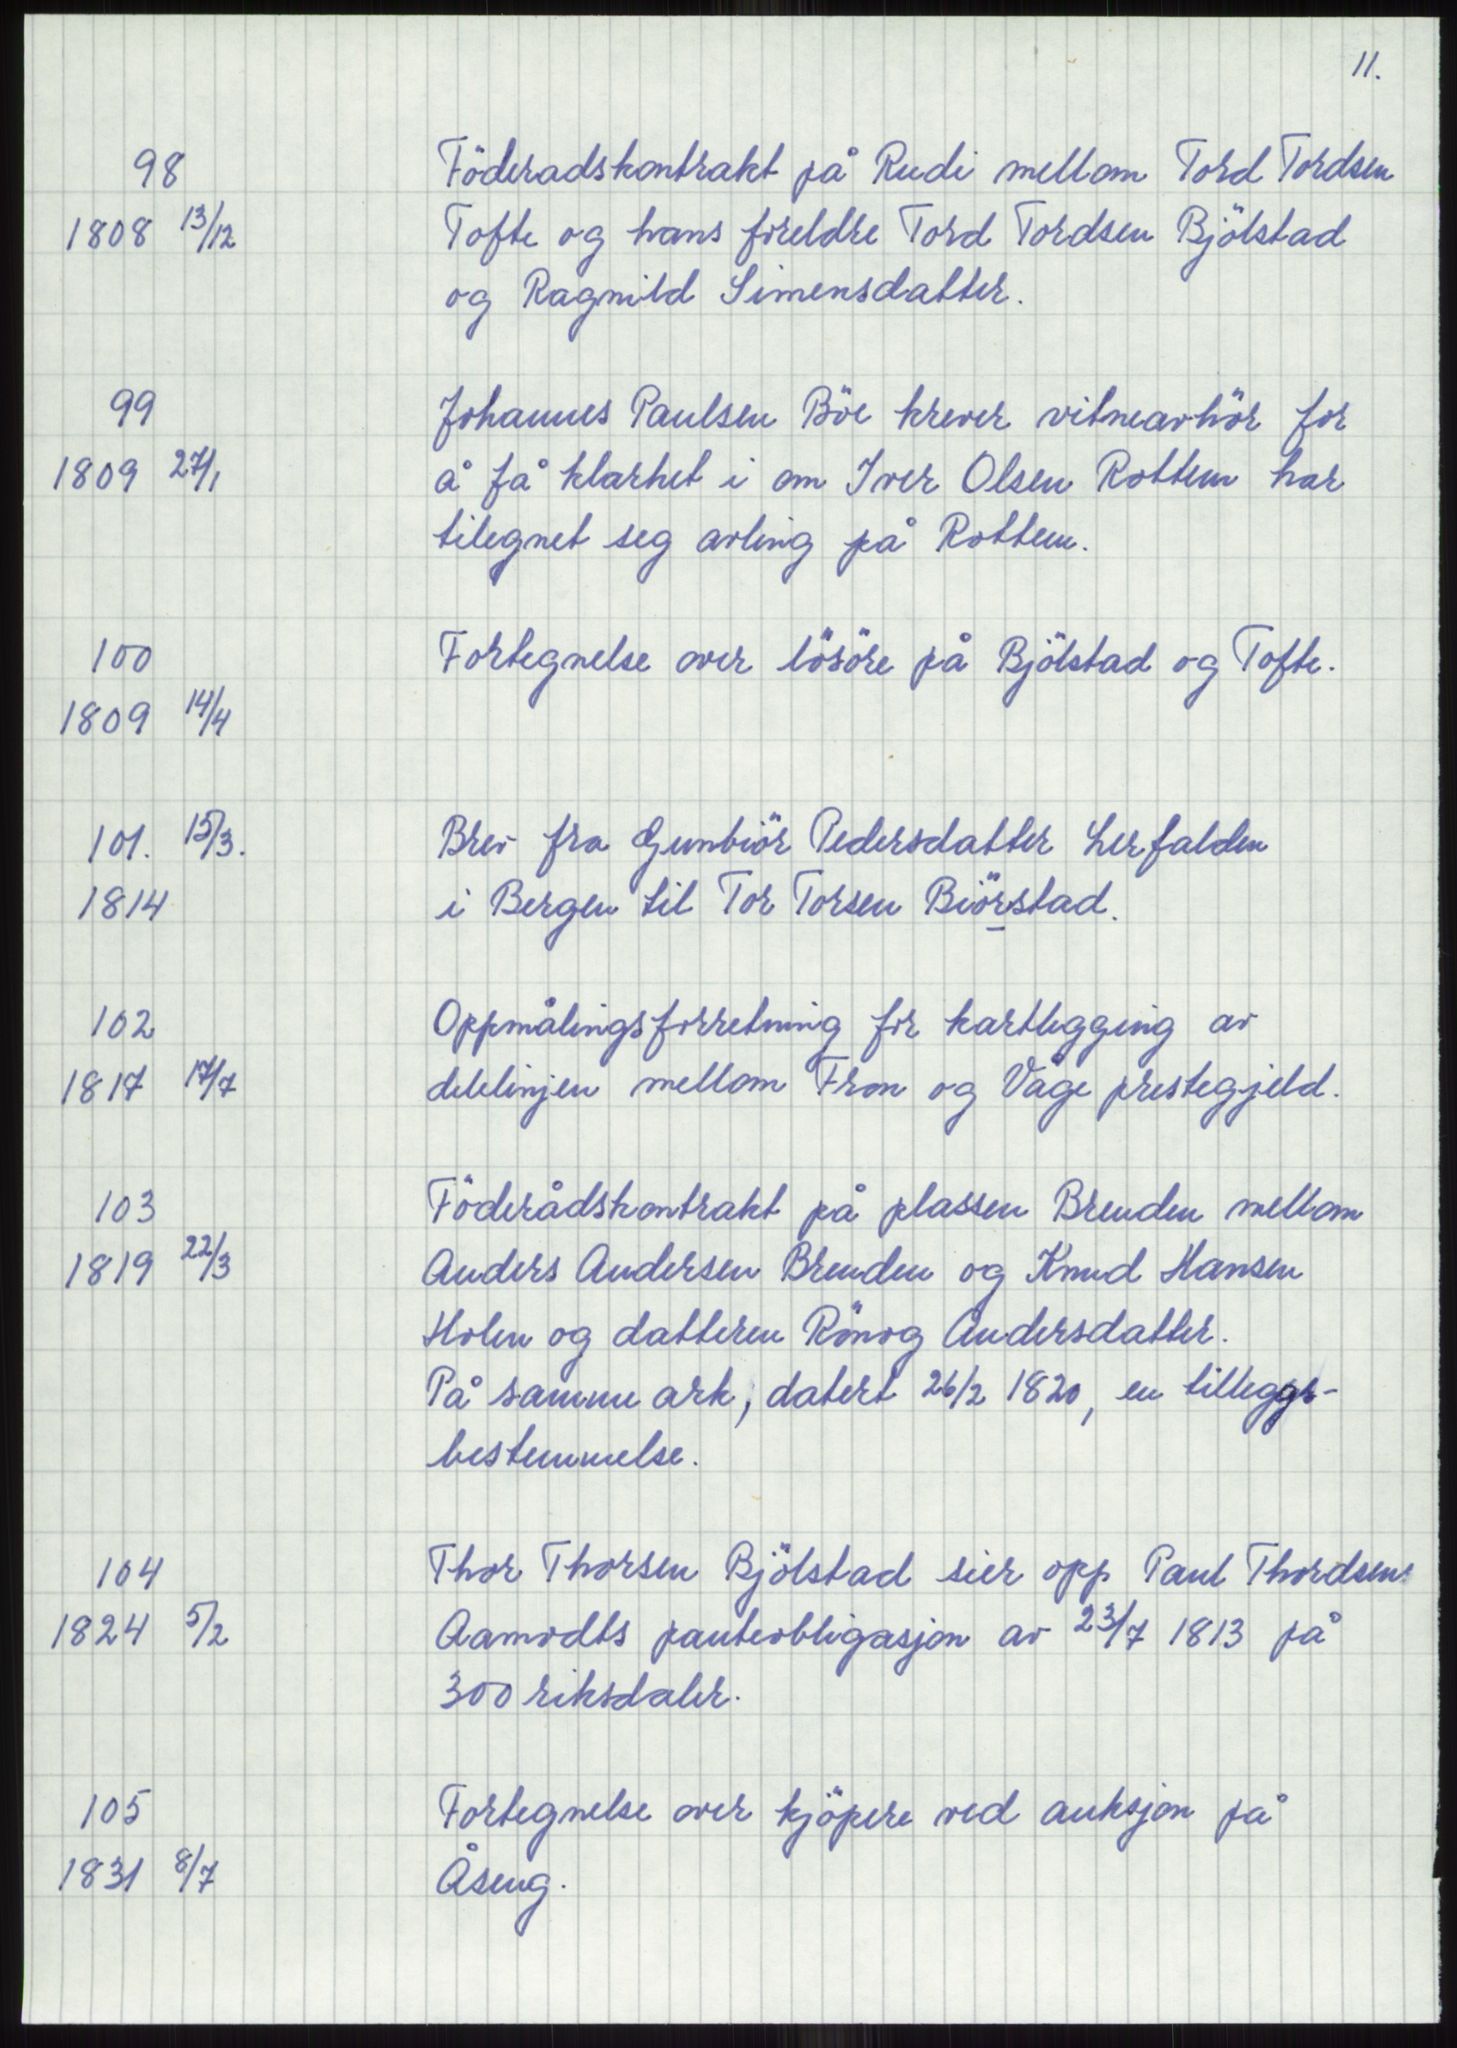 11.
98 Föderadskontrakt på Rudi mellom Tord Tordsen
1808 13/12 Tofte og hans foreldre Tord Tordsen Bjölstad
og Ragnild Simensdatter.
99 Johannes Paulsen Böe krever vitneavhör for
1809 27/1 å få klarhet i om Iver Olsen Rottem har
tilegnet seg avling på Rottem.
100 Fortegnelse over lösöre på Bjölstad og Tofte.
1809 14/4
101. 15/3. Brev fra Gunbiör Pedersdatter Lerfalden
1814 i Bergen til Tor Torsen Biörstad.
102 Oppmålingsforretning for kartlegging av
1817 17/7 delelinjen mellom Fron og Våge prestegjeld.
103 Föderådskontrakt på plassen Brenden mellom
1819 22/3 Anders Andersen Brenden og Knud Hansen
Holen og datteren Rönog Andersdatter.
På samme ark, datert 26/2 1820, en tilleggs-
bestemmelse.
104 Thor Thorsen Bjölstad sier opp Paul Thordsens
1824 5/2 Aamodts panteobligasjon av 23/7 1813 på
300 riksdaler.
105 Fortegnelse over kjöpere ved auksjon på
1831 8/7 Åseng.